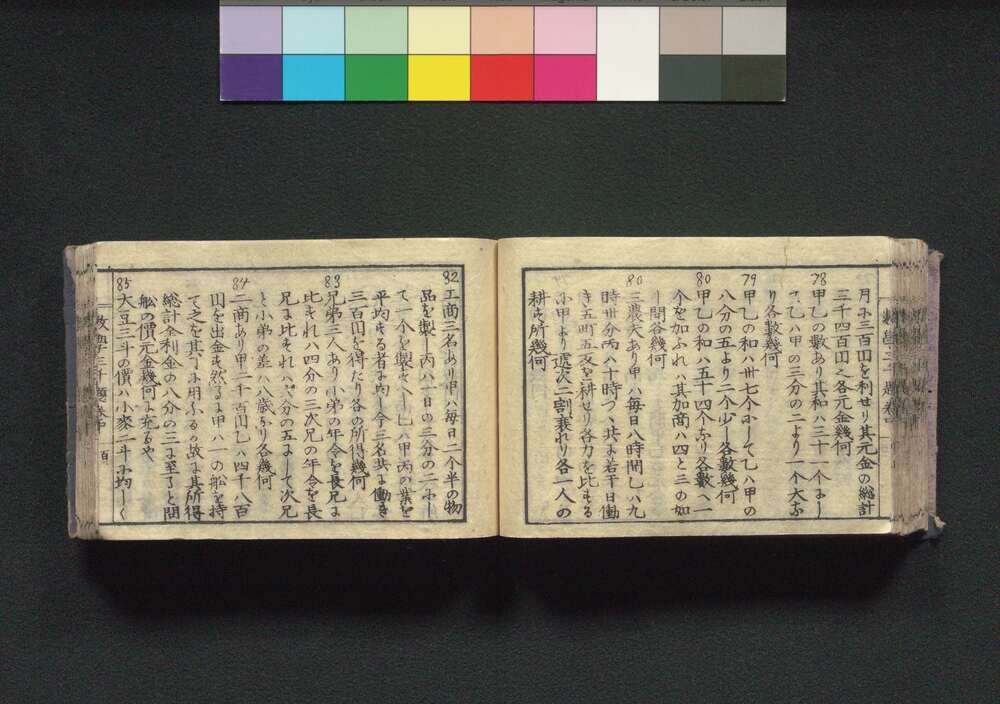 月ニ三百円を利せり其元金の総計
三千四百円之各元金幾何
78
甲乙の數あり其和ハ三十一个にし
て乙ハ甲の三分の二より一个大な
り各數幾何
79
甲乙の和ハ卅七个にして乙ハ甲の
八分の五より二个少し各數幾何
80
甲乙の和ハ五十四个なり各數へ一
个を加ふれハ其加商ハ四と三の如
し問各幾何
80
三農夫あり甲ハ毎日八時間乙ハ九
時卅分丙ハ十時づゝ共に若干日働
き五町五反を耕せり各力を比する
に甲より逓次二割衰れり各一人の
耕す所幾何
82
工商三名あり甲ハ毎日二个半の物
品を製し丙ハ一日の三分の二にし
て一个を製す乙ハ甲丙の業を
平均する者に内し今三名共に働き
三百円を得たり各の所得幾何
83
兄弟三人あり小弟の年令を長兄に
比すれハ四分の三次兄の年令を長
兄に比すれハ六分の五にして次兄
と小弟の差ハ八歳なり各幾何
84
二商あり甲二千百円乙ハ四千八百
円を出金す然るに甲ハ一の船を持
て之を其にに用ふるの故に其所得
総計全利金の八分の三に至ると問
船の價元金幾何に充るや
85
大豆三斗の價ハ小麥二斗に均しく